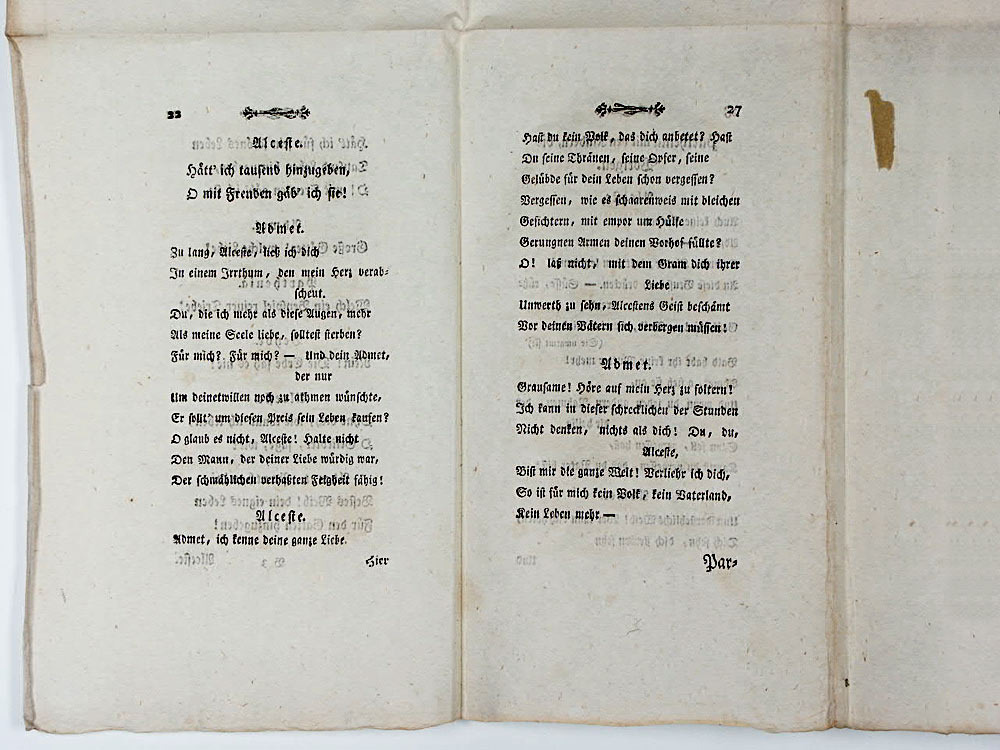 22
Alceste.
Hått' ich tausend hinzugeben,
O mit Freuden gäb' ich sie!
Admet.
Zu lang, Alceste, ließ ich dich
In einem Irrthum, den mein Herz verab-
scheut.
Du, die ich mehr als diese Augen, mehr
Als meine Seele liebe, solltest sterben?
Für mich? Für mich? — Und dein Admet,
der nur
Um deinetwillen noch zu athmen wünschte,
Er sollt' um diesen Preis sein Leben kaufen?
O glaub es nicht, Alceste! Halte nicht
Den Mann, der deiner Liebe würdig war,
Der schmählichen verhaßten Feigheit fähig!
Alceste.
Admet, ich kenne deine ganze Liebe.
Hier
27
Hast du kein Volk, das dich anbetet? Hast
Du seine Thränen, seine Opfer, seine
Gelübde für dein Leben schon vergessen?
Vergessen, wie es schaarenweis mit bleichen
Gesichtern, mit empor um Hülfe
Gerungnen Armen deinen Vorhof füllte?
O! laß nicht, mit dem Gram dich ihrer
Liebe
Unwerth zu sehn, Alcestens Geist beschämt
Vor deinen Vätern sich verbergen müssen!
Admet.
Grausame! Höre auf mein Herz zu foltern!
Ich kann in dieser schrecklichen der Stunden
Nicht denken, nichts als dich! Du, du,
Alceste,
Bist mir die ganze Welt! Verliehr ich dich,
So ist für mich kein Volk, kein Vaterland,
Kein Leben mehr —
Par-